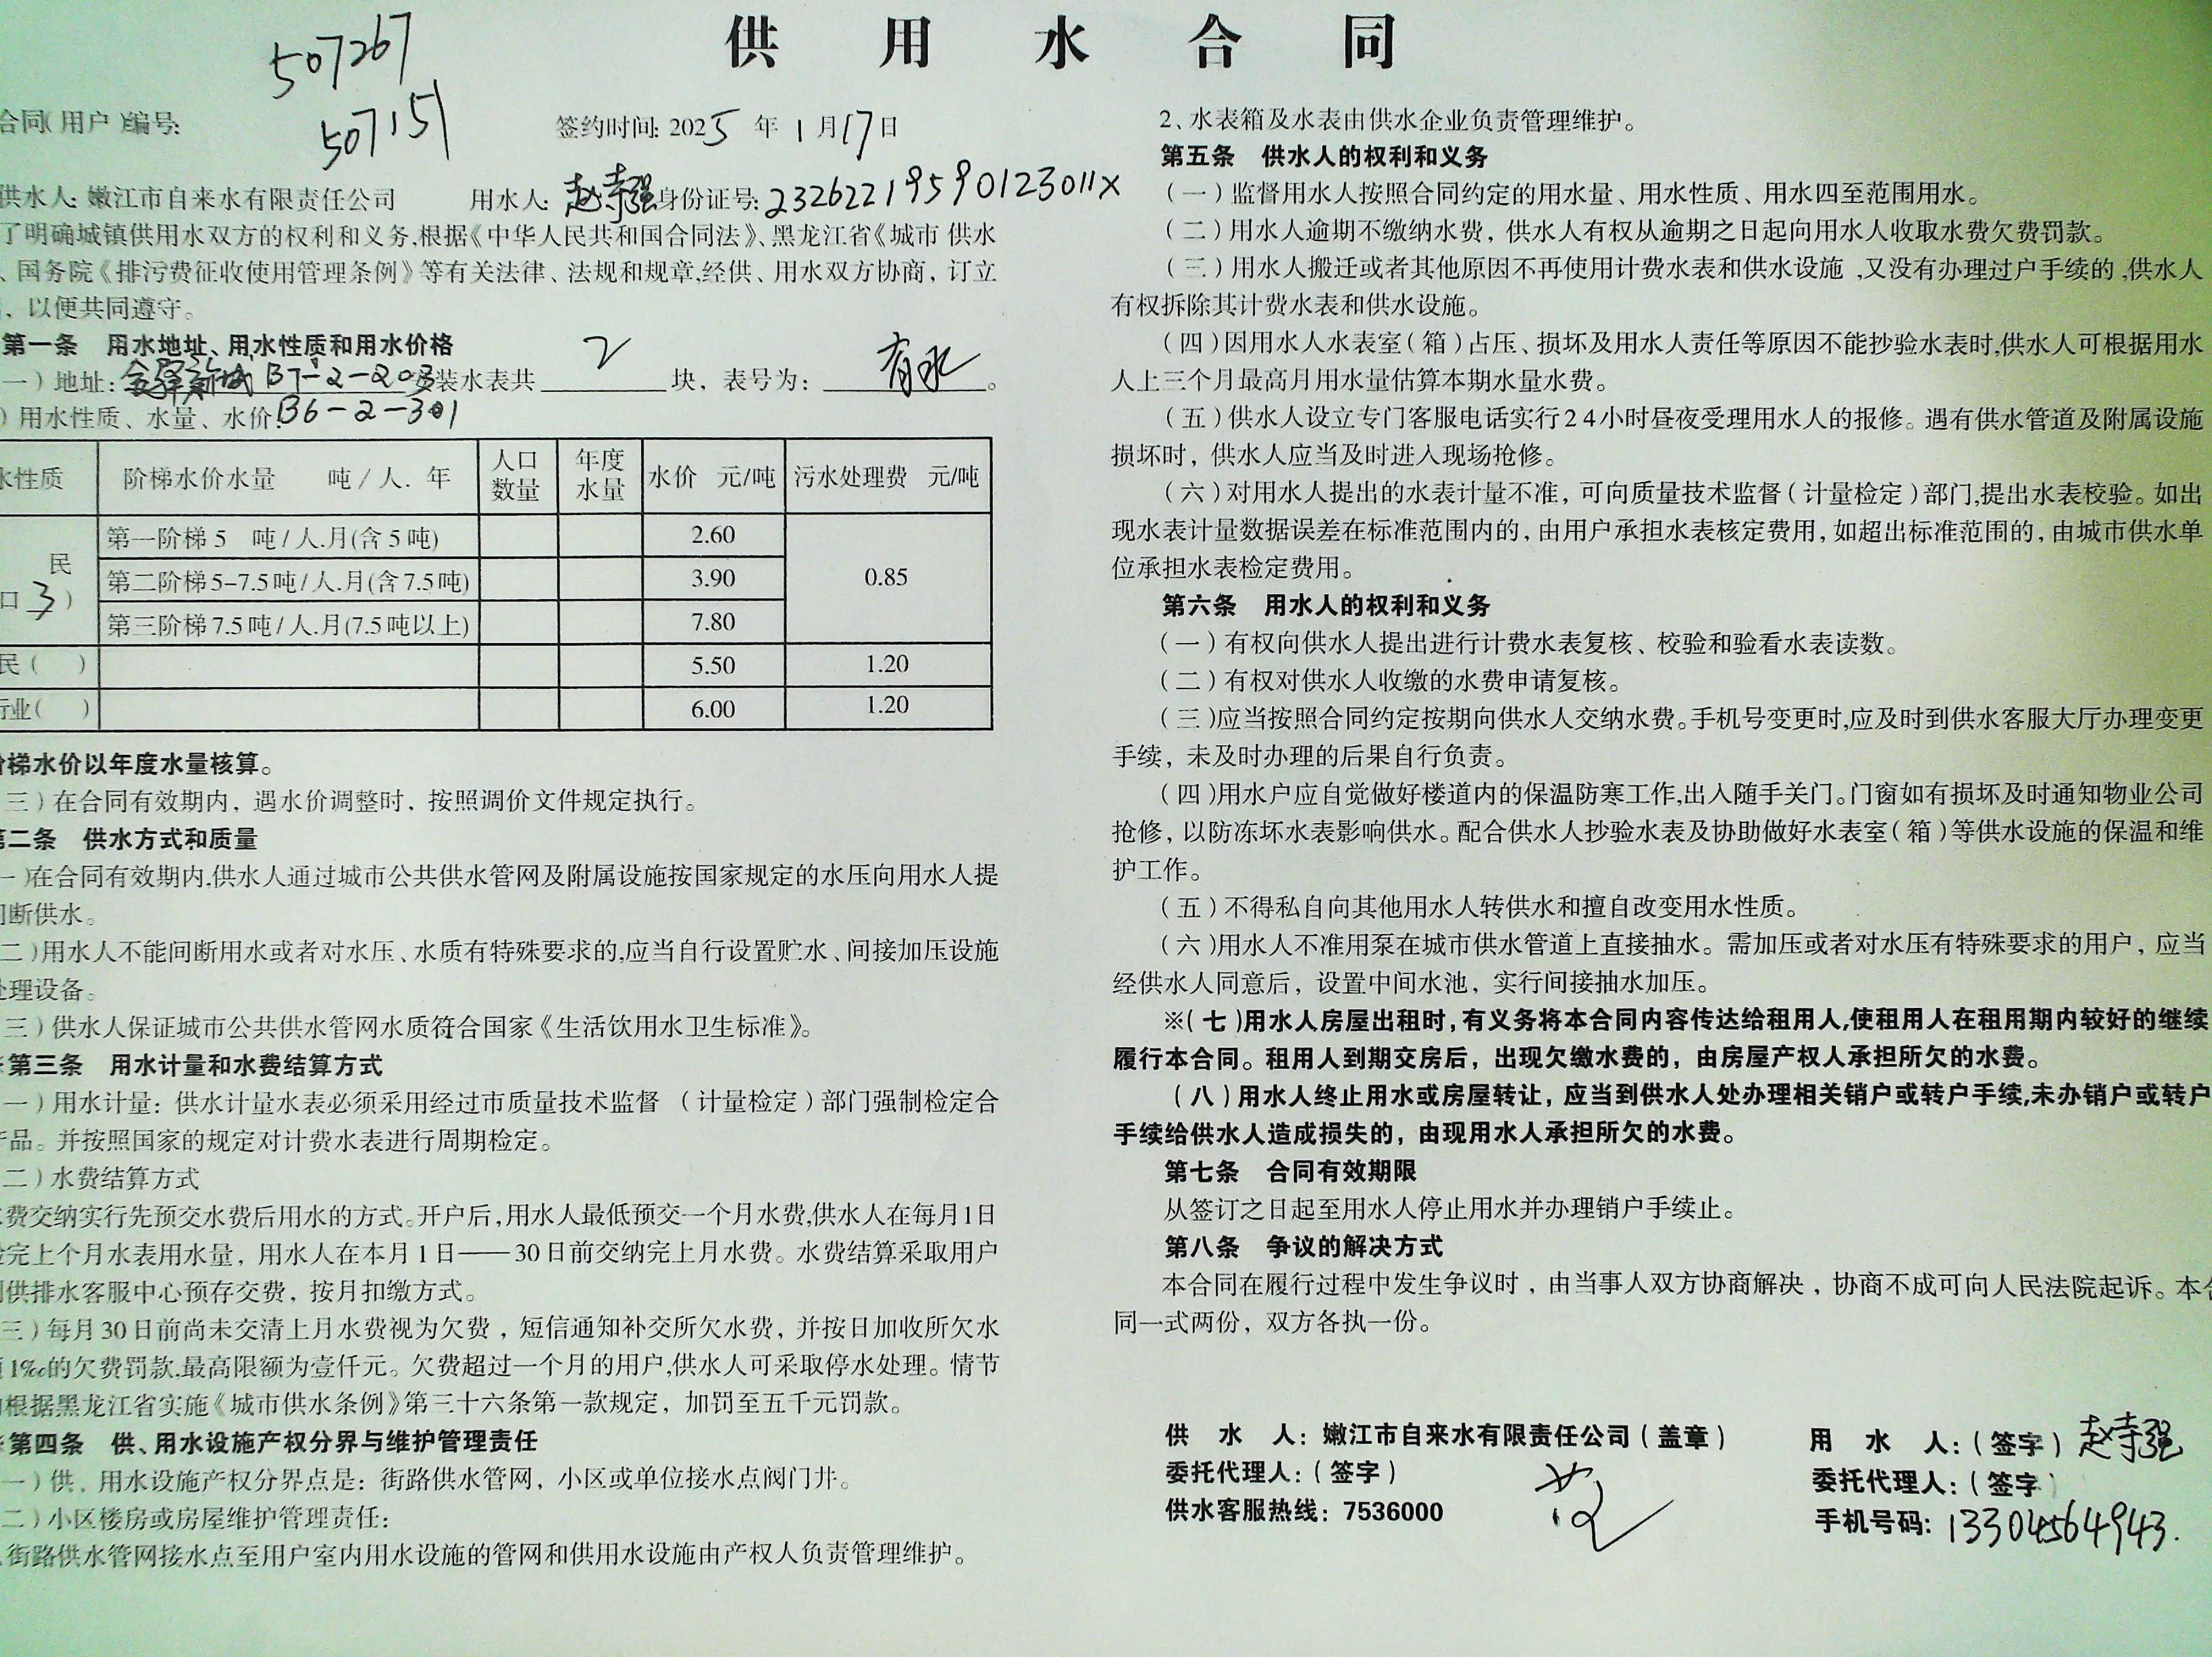 供用水合同
507267
合同(用户)编号:
507151
签约时间: 2025 年 1 月 17 日
供水人: 嫩江市自来水有限责任公司 用水人: 赵寿强 身份证号: 23262219590123011X
了明确城镇供用水双方的权利和义务,根据《中华人民共和国合同法》、黑龙江省《城市 供水
、国务院《排污费征收使用管理条例》等有关法律、法规和规章,经供、用水双方协商，订立
，以便共同遵守。
第一条 用水地址、用水性质和用水价格
一）地址: 新城 B7-2-203 装水表共 2 块，表号为: 有水。
）用水性质、水量、水价: B6-2-301
水性质 阶梯水价水量 吨/人. 年 人口数量 年度水量 水价 元/吨 污水处理费 元/吨
民 口3） 第一阶梯 5 吨/人.月(含 5 吨) 2.60 0.85
第二阶梯 5-7.5 吨/人.月(含 7.5 吨) 3.90
第三阶梯 7.5 吨/人.月(7.5 吨以上) 7.80
民（ ） 5.50 1.20
行业( ) 6.00 1.20
阶梯水价以年度水量核算。
三）在合同有效期内，遇水价调整时，按照调价文件规定执行。
第二条 供水方式和质量
一)在合同有效期内,供水人通过城市公共供水管网及附属设施按国家规定的水压向用水人提
间断供水。
二)用水人不能间断用水或者对水压、水质有特殊要求的,应当自行设置贮水、间接加压设施
处理设备。
三）供水人保证城市公共供水管网水质符合国家《生活饮用水卫生标准》。
※第三条 用水计量和水费结算方式
一）用水计量：供水计量水表必须采用经过市质量技术监督 （计量检定）部门强制检定合
产品。并按照国家的规定对计费水表进行周期检定。
二）水费结算方式
费交纳实行先预交水费后用水的方式。开户后,用水人最低预交一个月水费,供水人在每月1日
完上个月水表用水量，用水人在本月 1 日——30 日前交纳完上月水费。水费结算采取用户
到供排水客服中心预存交费，按月扣缴方式。
三）每月 30 日前尚未交清上月水费视为欠费，短信通知补交所欠水费，并按日加收所欠水
1‰的欠费罚款,最高限额为壹仟元。欠费超过一个月的用户,供水人可采取停水处理。情节
根据黑龙江省实施《城市供水条例》第三十六条第一款规定，加罚至五千元罚款。
※第四条 供、用水设施产权分界与维护管理责任
一）供、用水设施产权分界点是：街路供水管网，小区或单位接水点阀门井。
二）小区楼房或房屋维护管理责任：
街路供水管网接水点至用户室内用水设施的管网和供用水设施由产权人负责管理维护。
2、水表箱及水表由供水企业负责管理维护。
第五条 供水人的权利和义务
（一）监督用水人按照合同约定的用水量、用水性质、用水四至范围用水。
（二）用水人逾期不缴纳水费，供水人有权从逾期之日起向用水人收取水费欠费罚款。
（三）用水人搬迁或者其他原因不再使用计费水表和供水设施,又没有办理过户手续的,供水人
有权拆除其计费水表和供水设施。
（四）因用水人水表室（箱）占压、损坏及用水人责任等原因不能抄验水表时,供水人可根据用水
人上三个月最高月用水量估算本期水量水费。
（五）供水人设立专门客服电话实行24小时昼夜受理用水人的报修。遇有供水管道及附属设施
损坏时，供水人应当及时进入现场抢修。
（六）对用水人提出的水表计量不准，可向质量技术监督（计量检定）部门,提出水表校验。如出
现水表计量数据误差在标准范围内的，由用户承担水表核定费用，如超出标准范围的，由城市供水单
位承担水表检定费用。
第六条 用水人的权利和义务
（一）有权向供水人提出进行计费水表复核、校验和验看水表读数。
（二）有权对供水人收缴的水费申请复核。
（三）应当按照合同约定按期向供水人交纳水费。手机号变更时,应及时到供水客服大厅办理变更
手续，未及时办理的后果自行负责。
（四）用水户应自觉做好楼道内的保温防寒工作,出入随手关门。门窗如有损坏及时通知物业公司
抢修，以防冻坏水表影响供水。配合供水人抄验水表及协助做好水表室（箱）等供水设施的保温和维
护工作。
（五）不得私自向其他用水人转供水和擅自改变用水性质。
（六）用水人不准用泵在城市供水管道上直接抽水。需加压或者对水压有特殊要求的用户，应当
经供水人同意后，设置中间水池，实行间接抽水加压。
※（七）用水人房屋出租时,有义务将本合同内容传达给租用人,使租用人在租用期内较好的继续
履行本合同。租用人到期交房后，出现欠缴水费的，由房屋产权人承担所欠的水费。
（八）用水人终止用水或房屋转让，应当到供水人处办理相关销户或转户手续,未办销户或转户
手续给供水人造成损失的，由现用水人承担所欠的水费。
第七条 合同有效期限
从签订之日起至用水人停止用水并办理销户手续止。
第八条 争议的解决方式
本合同在履行过程中发生争议时，由当事人双方协商解决，协商不成可向人民法院起诉。本合
同一式两份，双方各执一份。
供 水 人：嫩江市自来水有限责任公司（盖章）
委托代理人：（签字）
供水客服热线：7536000
用 水 人：（签字）赵寿强
委托代理人：（签字）
手机号码：13304564943.